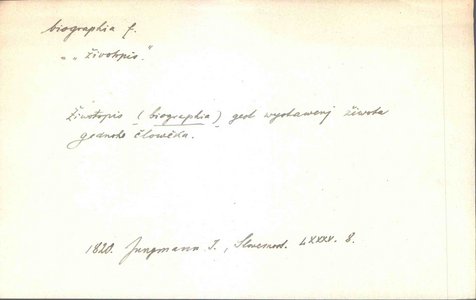 biographia f.
„ „ životopis."
Životopis (biographia) gest wystawenj života
gednoho člowěka.
1820. Jungmann J., Slovesnost. LXXXV. 8.